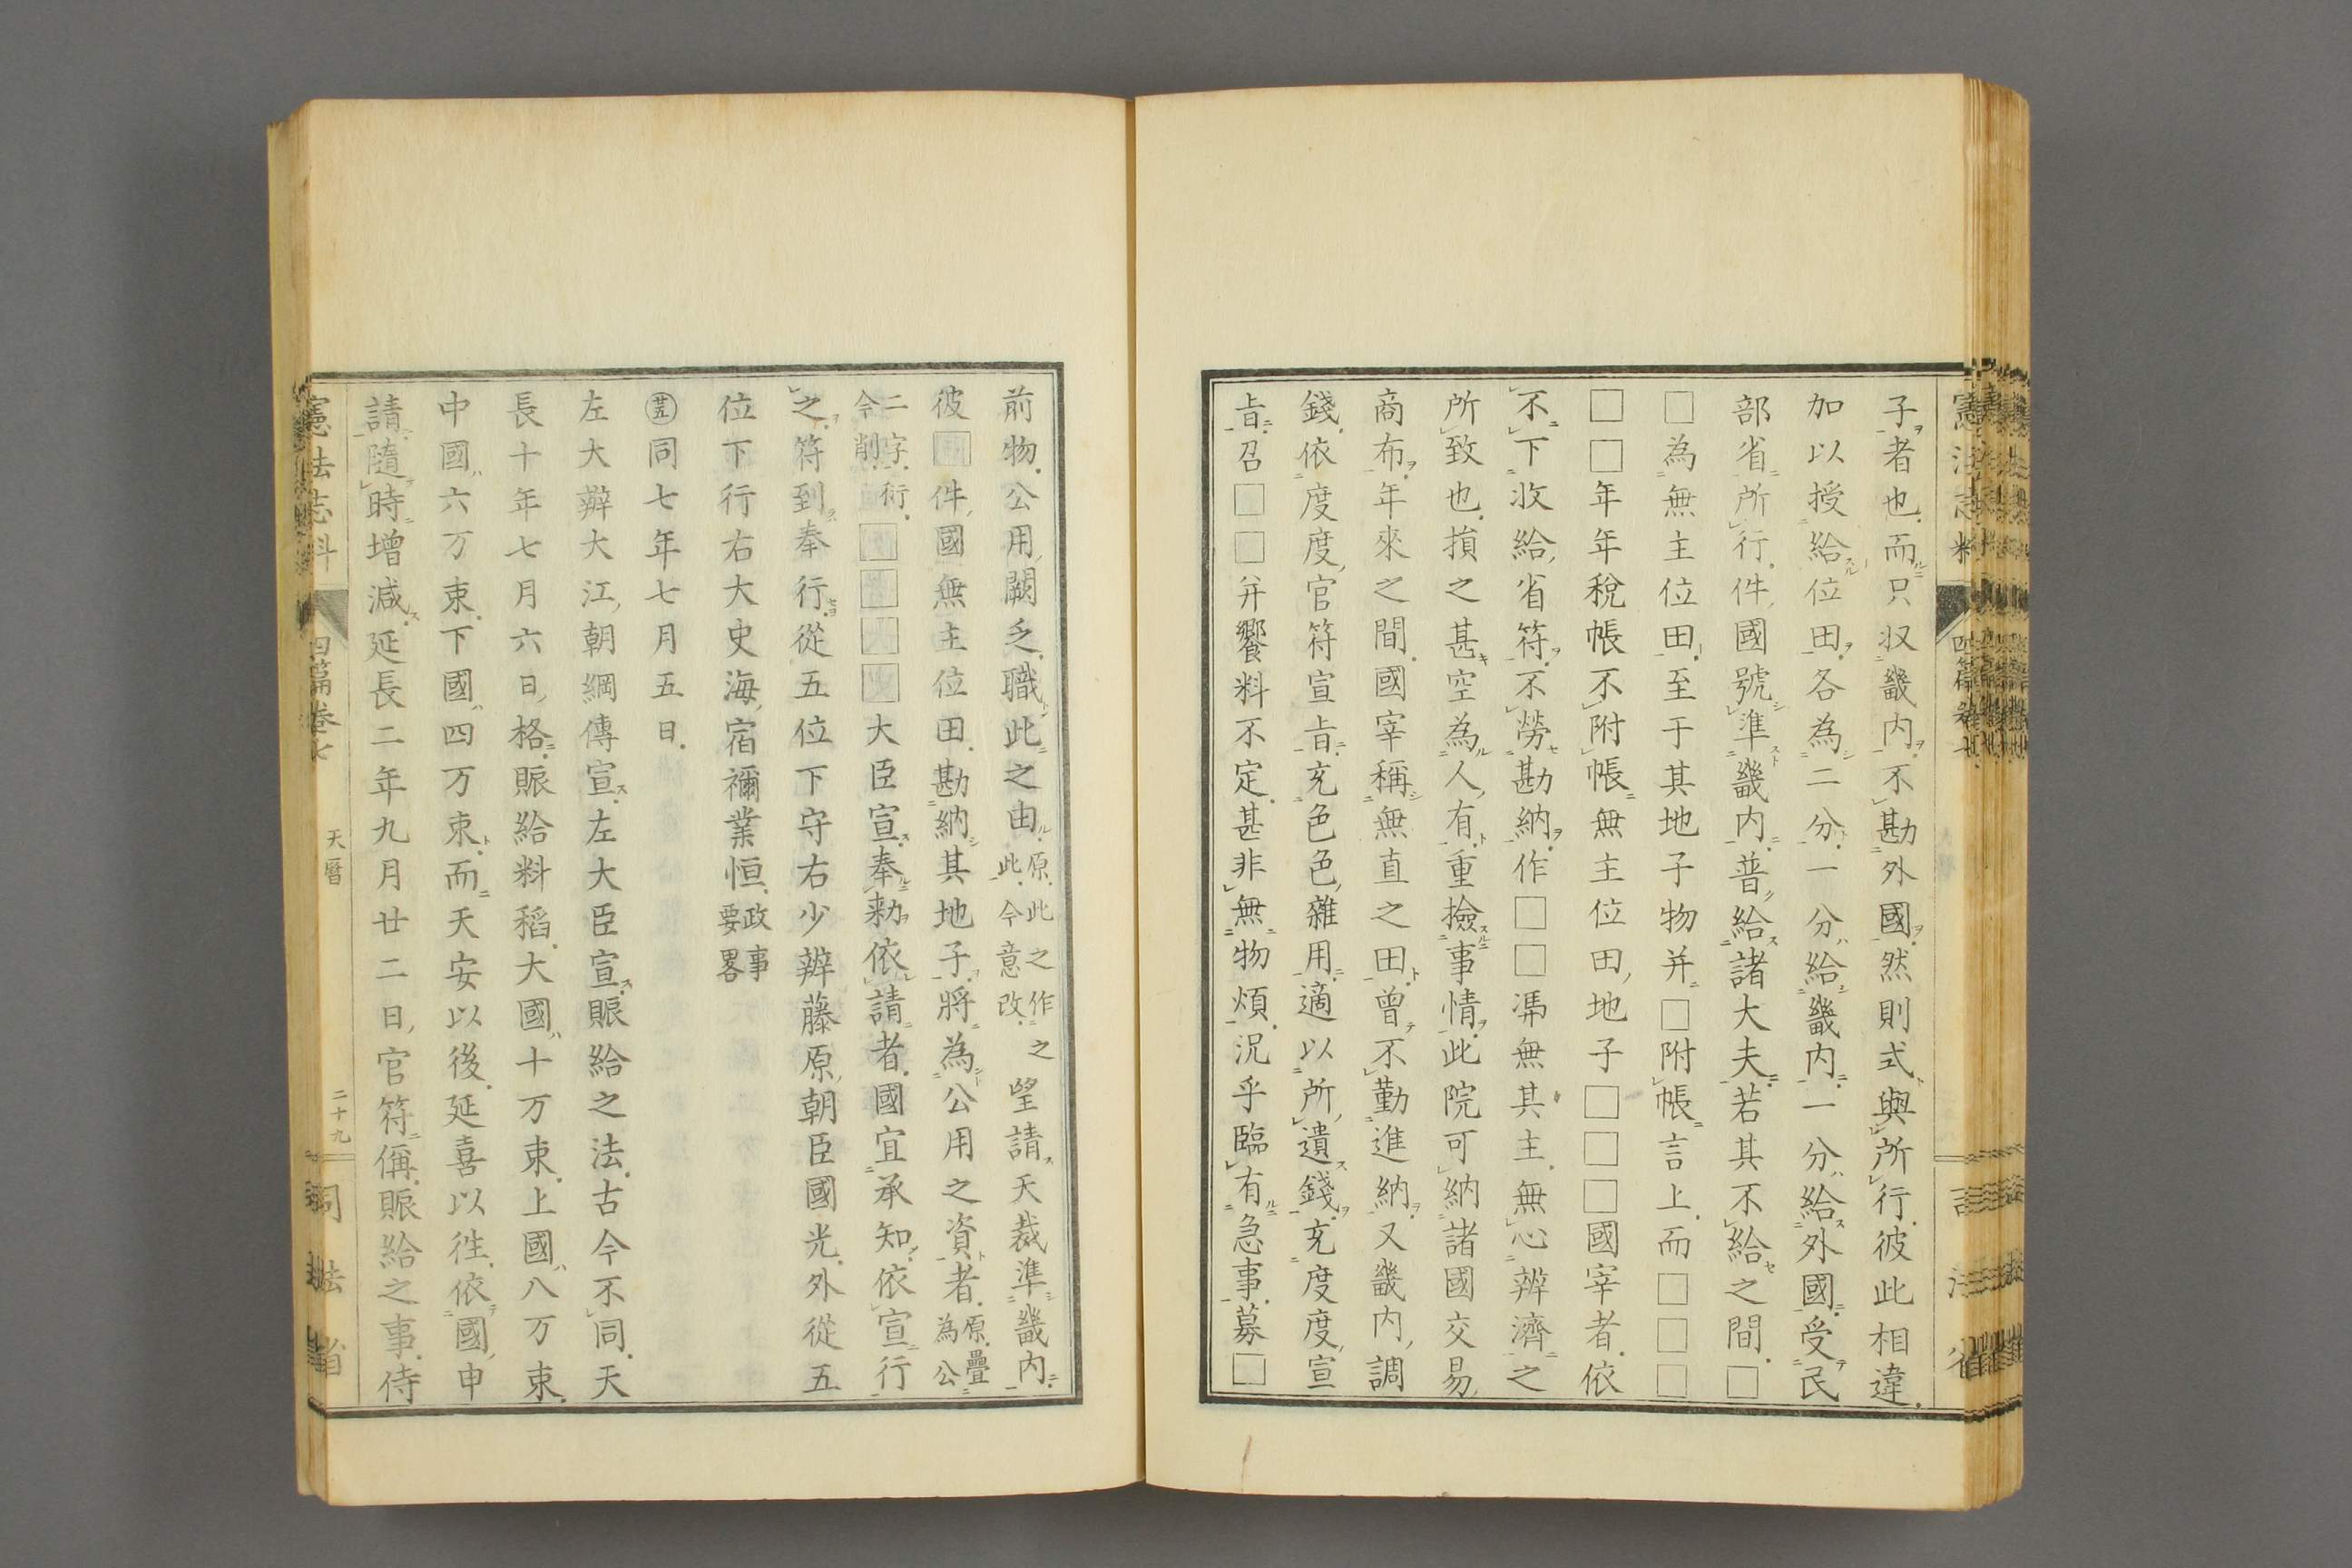 子者也而只収畿内不勘外國然則式與所行彼此相違
加以授給位田各為二分一分給畿内一分給外國受民
部省所行件國號準畿内普給諸大夫若其不給之間□
□為無主位田至于其地子物并□附帳言上而□□□
□□年年税帳不附帳無主位田地子□□□國宰者依
不下收給省符不勞勘納作□□馮無其主無心辨濟之
所致也損之甚空為人有重撿事情此院可納諸國交易
商布年來之間國宰稱無直之田曾不勤進納又畿内調
錢依度度官符宣旨充色色雜用適以所遺錢充度度宣
旨召□□并饗料不定甚非無物煩況乎臨有急事募□
前物公用闕乏職此之由原此之作之此今意改望請天裁準畿内
彼□件國無主位田勘納其地子將為公用之資者原疊為公
二字衍今削□□□□大臣宣奉勅依請者國宜承知依宣行
之符到奉行從五位下守右少辨藤原朝臣國光外從五
位下行右大史海宿禰業恒政事要畧
㉕同七年七月五日
左大辨大江朝綱傳宣左大臣宣賑給之法古今不同天
長十年七月六日格賑給料稻大國十万束上國八万束
中國六万束下國四万束而天安以後延喜以徃依國申
請隨時增減延長二年九月廿二日官符偁賑給之事待
憲法志料 四篇卷七 天曆 二十九 司法省